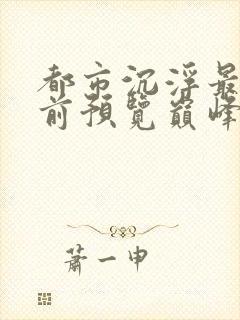 都市沉浮最
前預覽巔峰
蕭一申